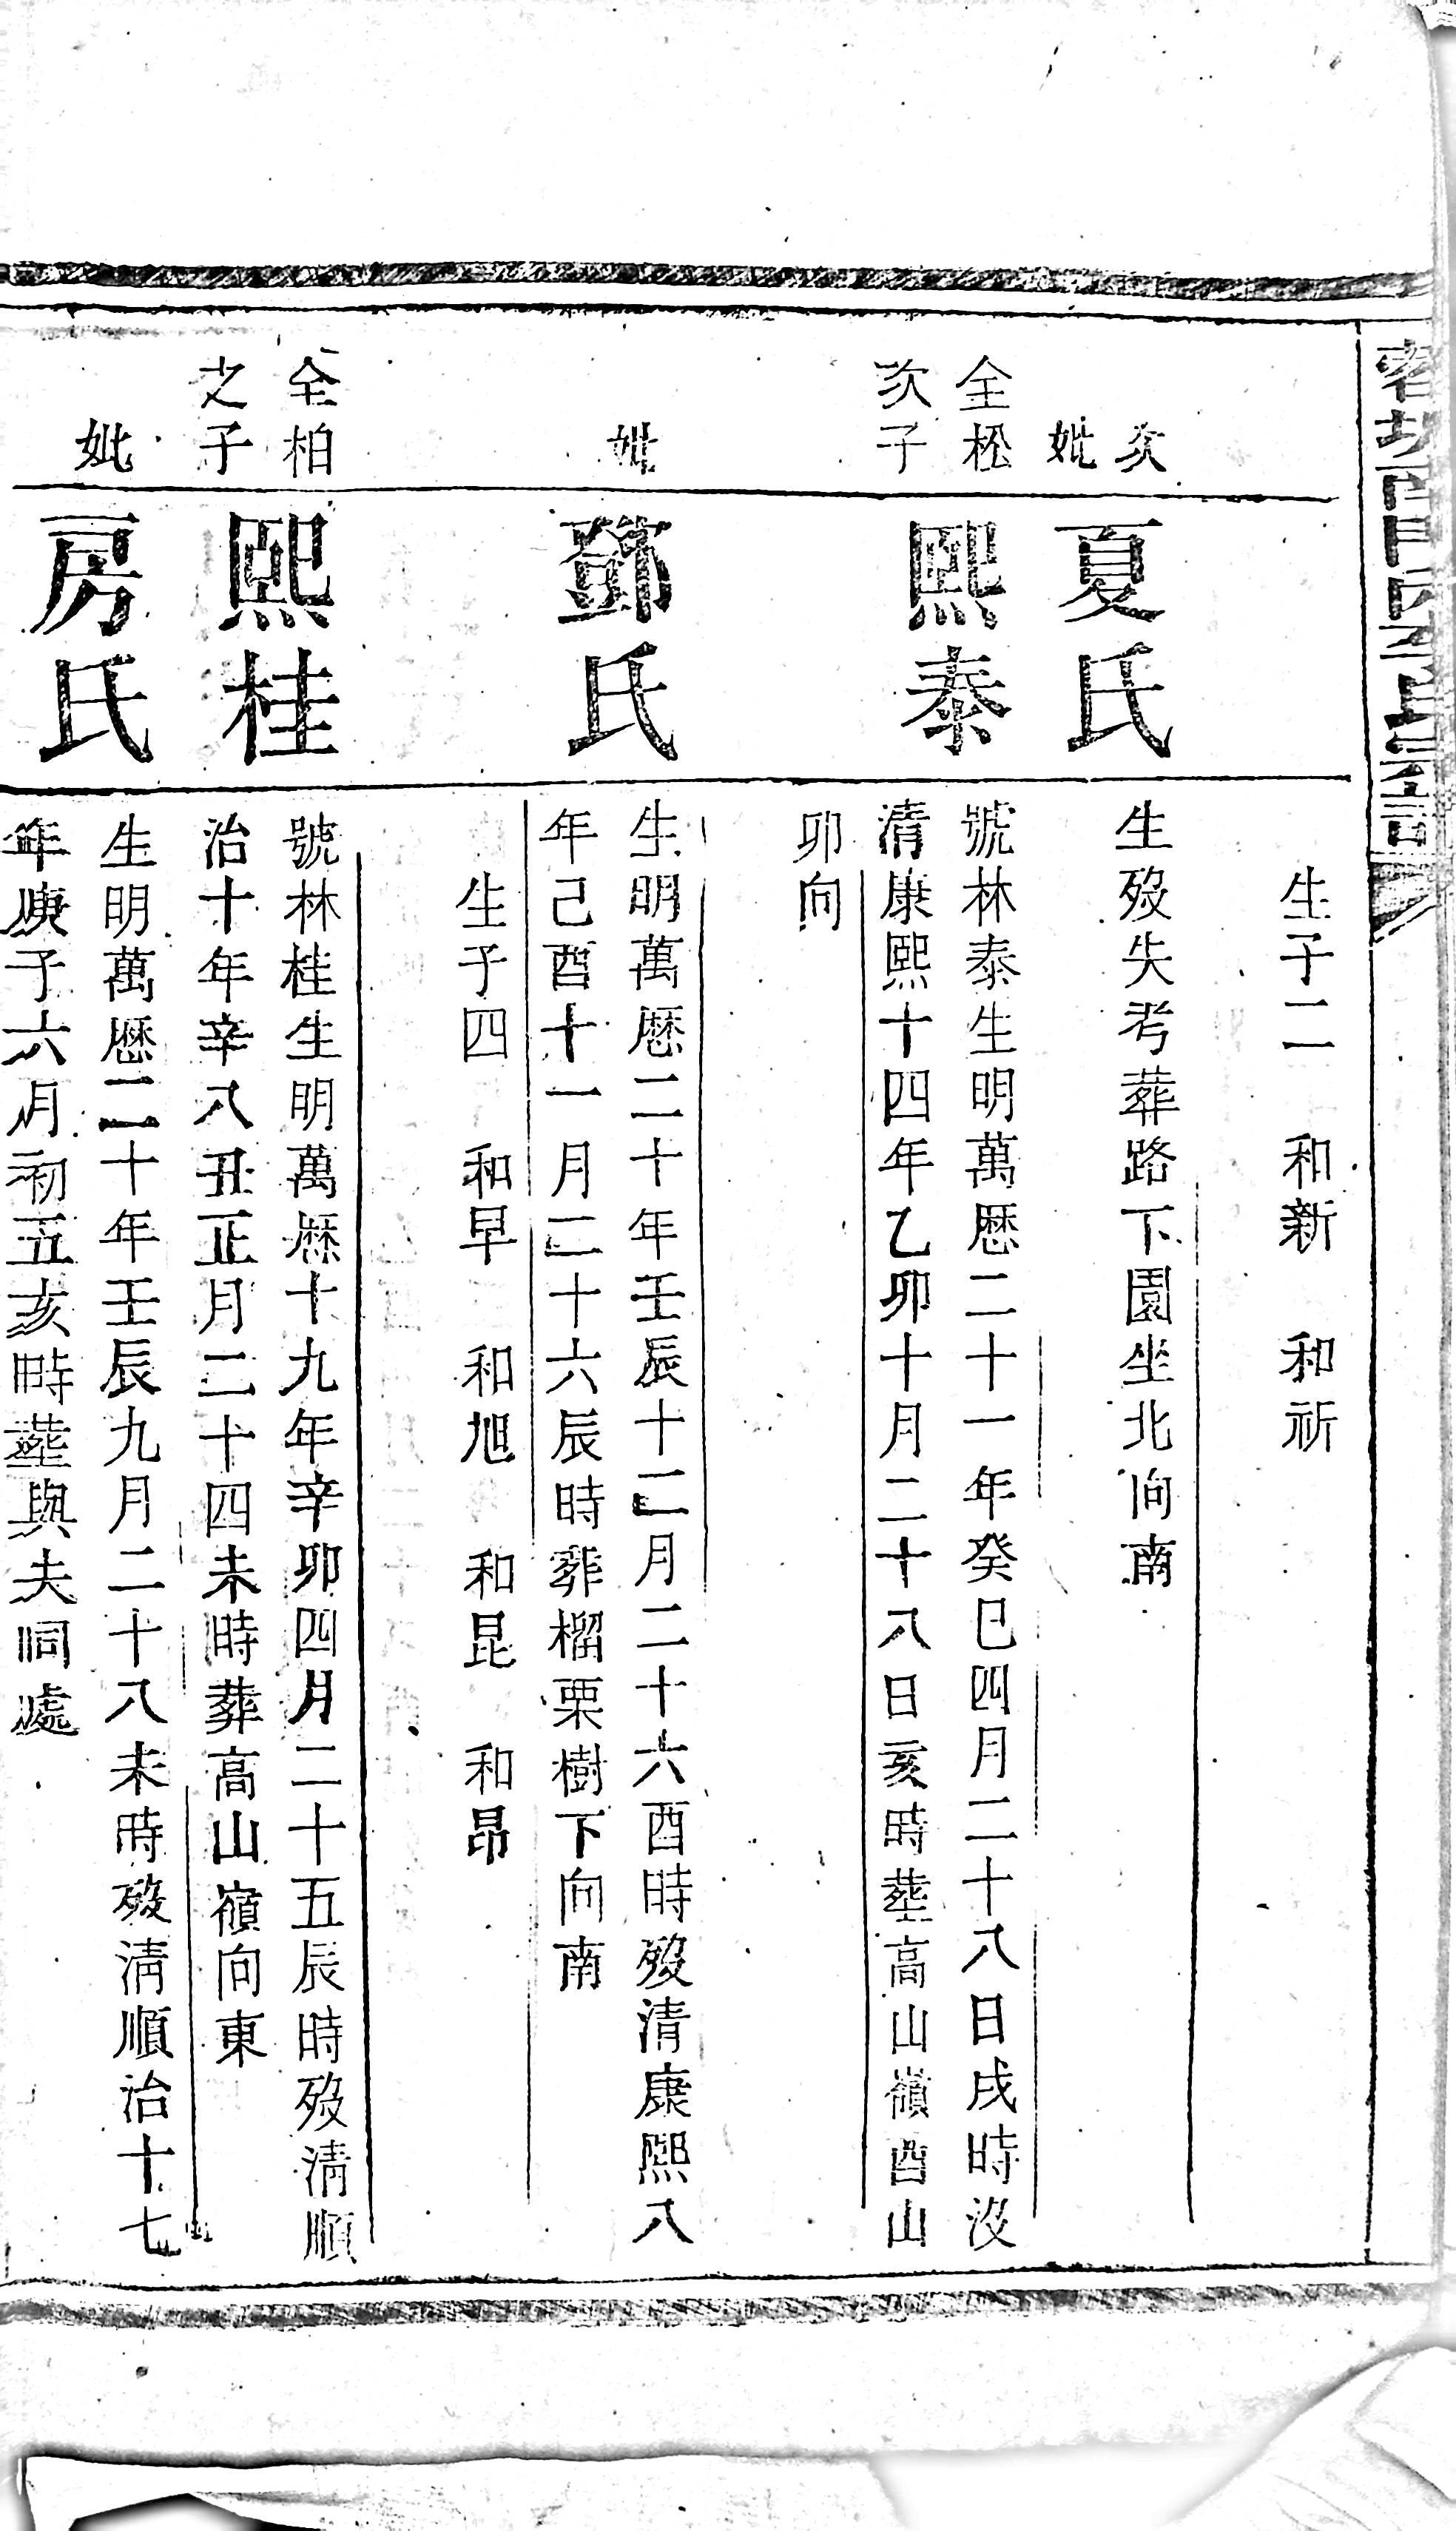 生子二 和新 和祈
次
妣
夏氏
生歿失考葬路下園坐北向南
全松
次子
熙泰
號林泰生明萬歷二十一年癸巳四月二十八日戌時沒
清康熙十四年乙卯十月二十八日亥時塟高山嶺酉山
卯向
妣
鄧氏
生明萬歷二十年壬辰十二月二十六酉時歿清康熙八
年己酉十一月二十六辰時葬榴栗樹下向南
生子四 和早 和旭 和昆 和昂
全柏
之子
熙桂
號林桂生明萬歷十九年辛卯四月二十五辰時歿清順
治十年辛八丑正月二十四未時葬高山嶺向東
妣
房氏
生明萬歷二十年壬辰九月二十八未時歿清順治十七
年庚子六月初五亥時塟與夫同處